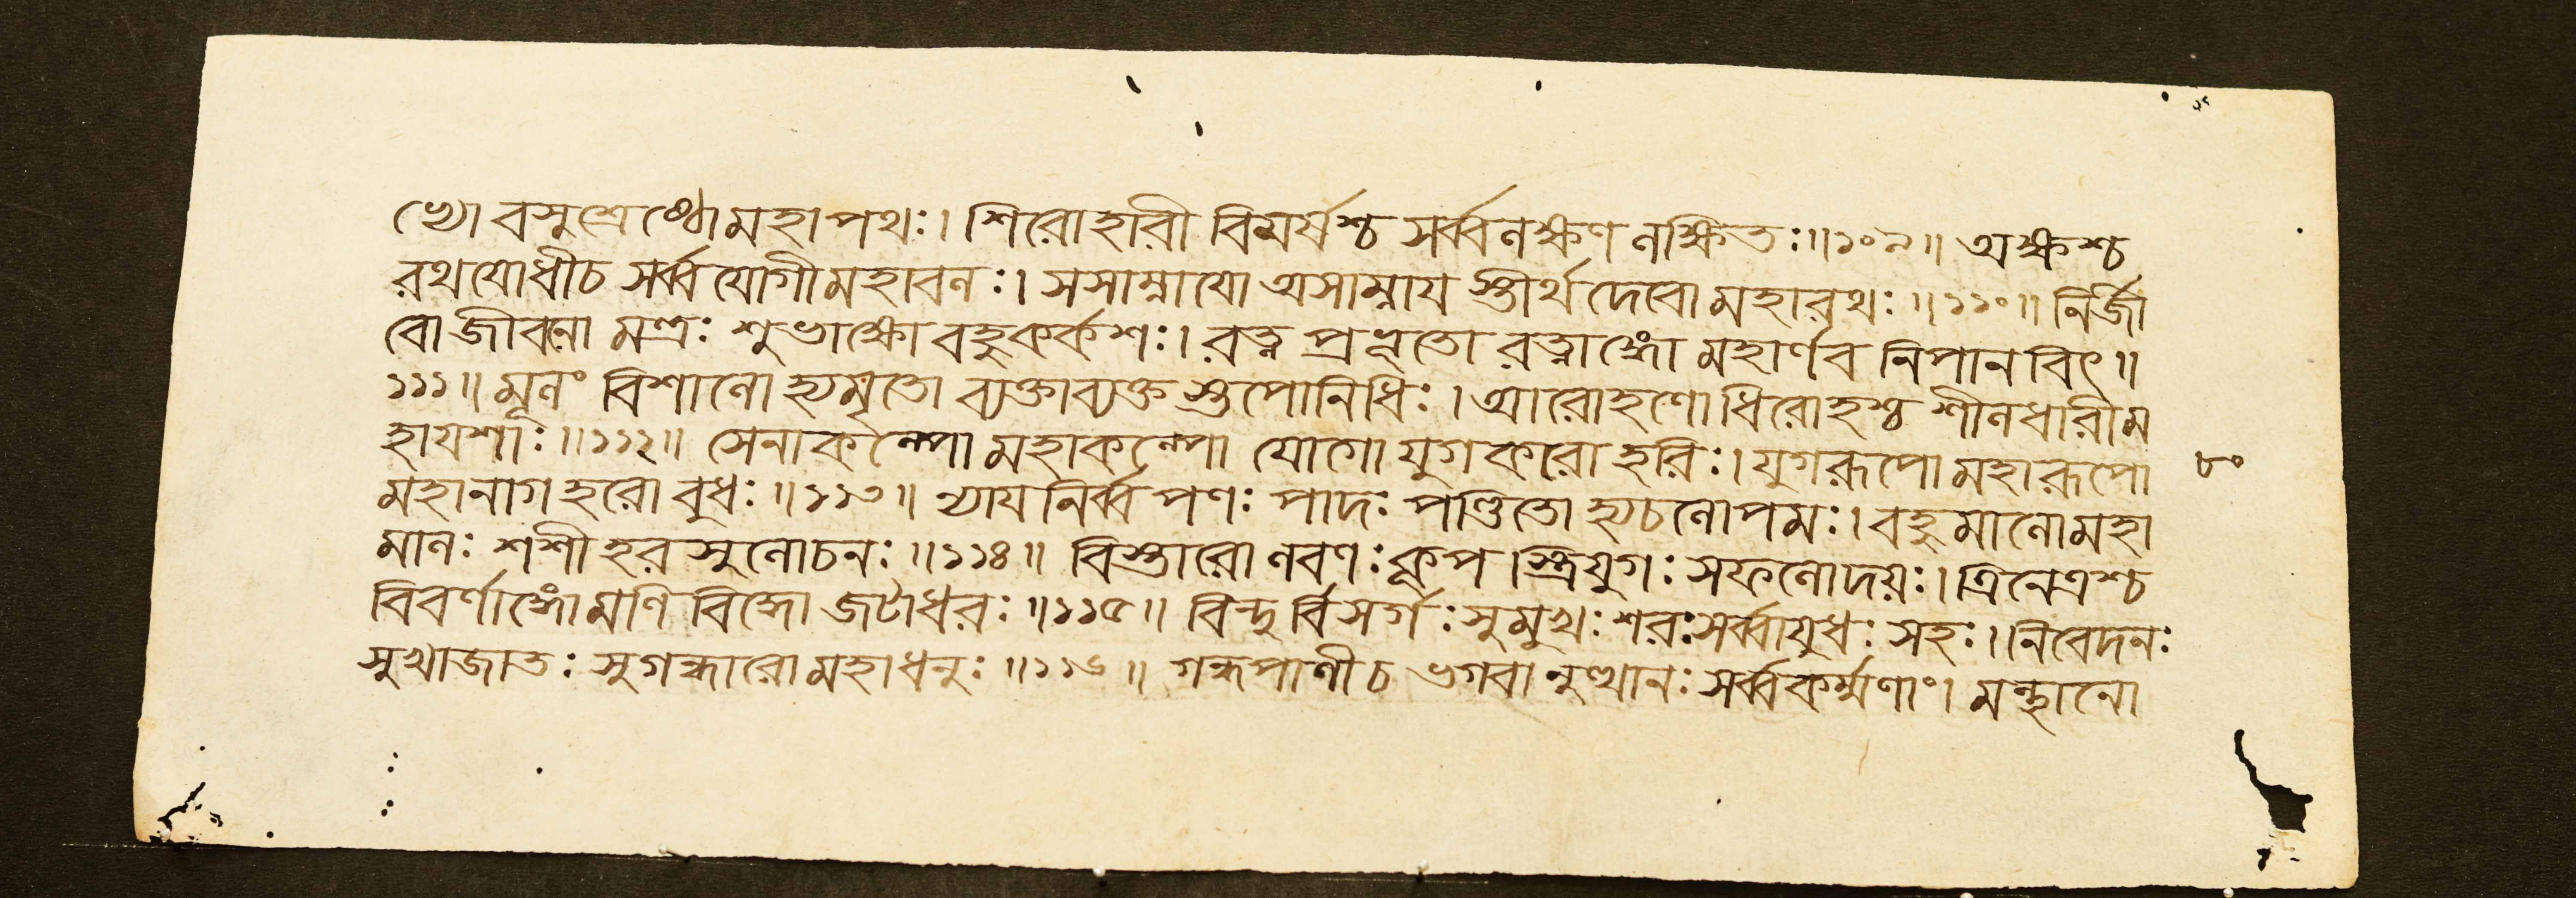 খ্যো বসুশ্রেষ্ঠো মহাপথঃ। শিরোহারী বিমর্ষশ্চ সর্ব্বলক্ষণ লক্ষিতঃ॥১০৯॥ অক্ষশ্চ
রথযোধীচ সর্ব্বযোগী মহাবলঃ। সসাম্নাযো অসাম্নায স্তীর্থদেবো মহারথঃ॥১১০॥ নির্জী
বো জীবনো মন্ত্রঃ শুভাক্ষো বহুকর্কশঃ। রত্ন প্রভূতো রত্নাঙ্গো মহার্ণব নিপানবিৎ॥
১১১॥ মূলং বিশালো হ্যমৃতো ব্যক্তাব্যক্ত স্তপোনিধিঃ। আরোহণোধিরোহশ্চ শীলধারীম
হাযশাঃ॥১১২॥ সেনাকল্পো মহাকল্পো যোগো যুগকরো হরিঃ। যুগরূপো মহারূপো
মহানাগহরো বুধঃ॥১১৩॥ ন্যায নির্ব্বপণঃ পাদঃ পণ্ডিতো হ্যচলোপমঃ। বহুমালো মহা
মালঃ শশী হরসুলোচনঃ॥১১৪॥ বিস্তারো লবণঃ কূপ স্ত্রিযুগঃ সফলোদয়ঃ। ত্রিনেত্রশ্চ
বিবর্ণাঙ্গো মণি বিদ্ধো জটাধরঃ॥১১৫॥ বিন্দু র্বিসর্গঃ সুমুখঃ শরঃ সর্ব্বাযুধঃ সহঃ। নিবেদনঃ
সুখাজাতঃ সুগন্ধারো মহাধনুঃ॥১১৬॥ গন্ধপালীচ ভগবানুত্থানঃ সর্ব্বকর্ম্মণাং। মন্থানো
৮০